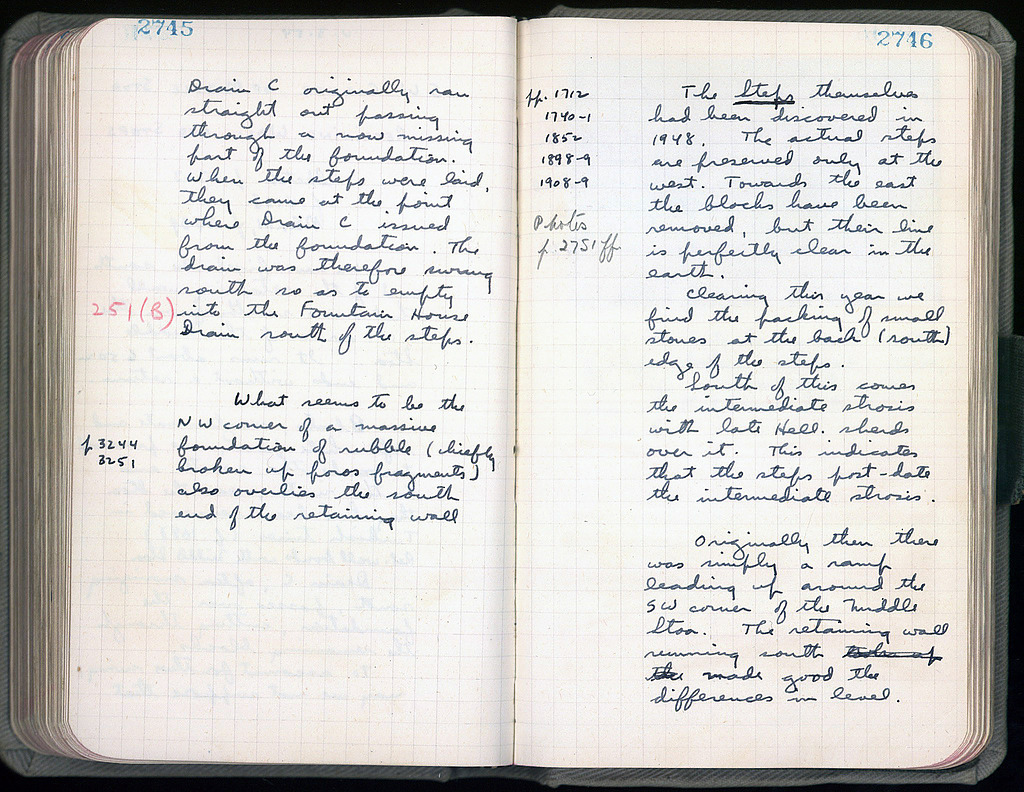 2745
Drain C originally ran
straight out passing
through a now missing
part of the foundation.
When the steps were laid,
they came at the point
where Drain C issued
from the foundation. The
drain was therefore swung
south so as to empty
251 (B) into the Fountain House
Drain south of the steps.
What seems to be the
NW corner of a massive
p 3244 foundation of rubble (chiefly
3251 broken up poros fragments)
also overlies the south
end of the retaining wall
2746
pp. 1712 The Steps themselves
1740-1 had been discovered in
1852 1948. The actual steps
1898-9 are preserved only at the
1908-9 west. Towards the east
the blocks have been
Photos removed, but their line
p. 2751 ff is perfectly clear in the
earth.
Clearing this year we
find the packing of small
stones at the back (south)
edge of the steps.
South of this comes
the intermediate strosis
with late Hell. sherds
over it. This indicates
that the steps post-date
the intermediate strosis.
Originally then there
was simply a ramp
leading up around the
SW corner of the Middle
Stoa. The retaining wall
running south
made good the
differences in level.